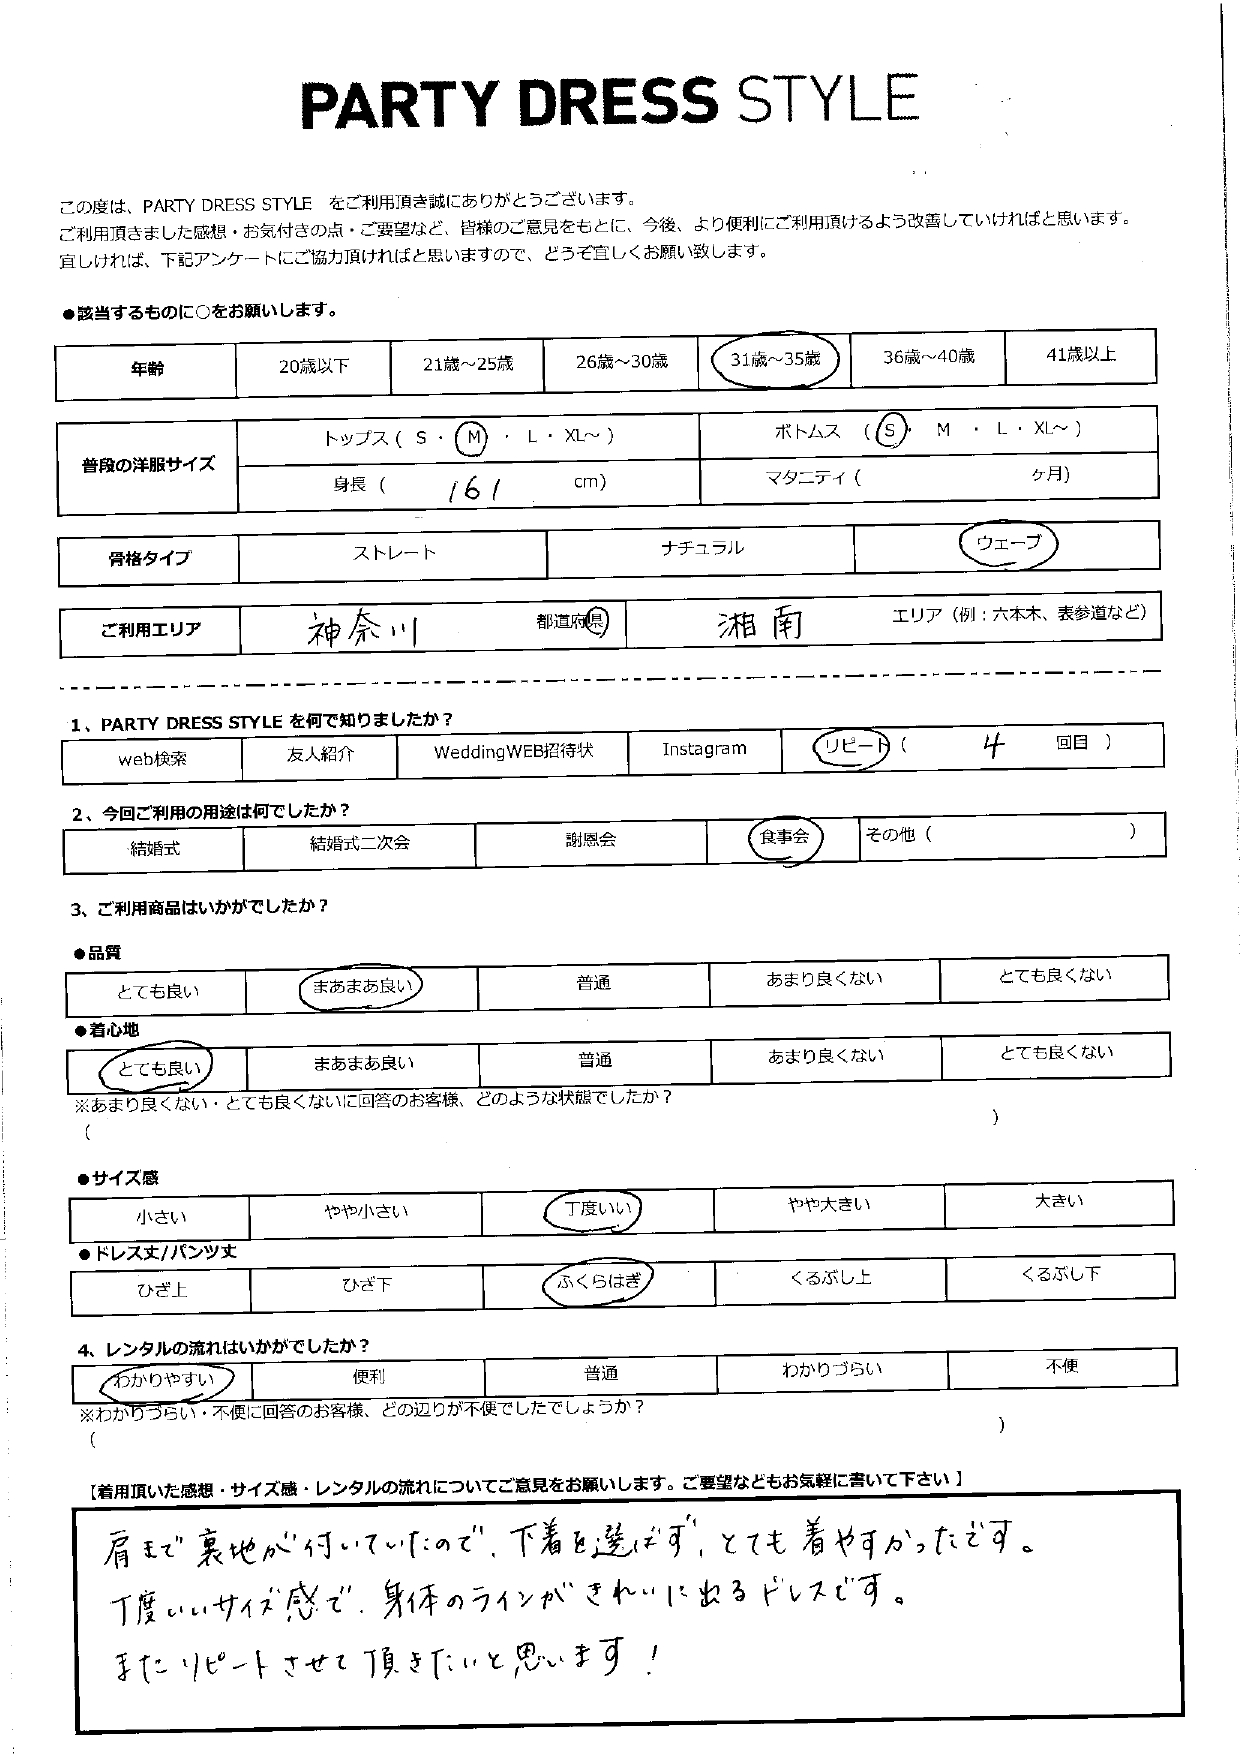 PARTY DRESS STYLE
この度は、PARTY DRESS STYLE をご利用頂き誠にありがとうございます。
ご利用頂きました感想・お気付きの点・ご要望など、皆様のご意見をもとに、今後、より便利にご利用頂けるよう改善していければと思います。
宜しければ、下記アンケートにご協力頂ければと思いますので、どうぞ宜しくお願い致します。
●該当するものに○をお願いします。
年齢 20歳以下 21歳～25歳 26歳～30歳 31歳～35歳 36歳～40歳 41歳以上
普段の洋服サイズ トップス( S ・ M ・ L ・ XL～ ) ボトムス ( S ・ M ・ L ・ XL～ )
身長 ( 161 cm) マタニティ ( ヶ月)
骨格タイプ ストレート ナチュラル ウェーブ
ご利用エリア 神奈川 都道府県 湘南 エリア（例：六本木、表参道など）
1、PARTY DRESS STYLE を何で知りましたか？
web検索 友人紹介 WeddingWEB招待状 Instagram リピート ( 4 回目 )
2、今回ご利用の用途は何でしたか？
結婚式 結婚式二次会 謝恩会 食事会 その他 ( )
3、ご利用商品はいかがでしたか？
●品質
とても良い まあまあ良い 普通 あまり良くない とても良くない
●着心地
とても良い まあまあ良い 普通 あまり良くない とても良くない
※あまり良くない・とても良くないに回答のお客様、どのような状態でしたか？
( )
●サイズ感
小さい やや小さい 丁度いい やや大きい 大きい
●ドレス丈/パンツ丈
ひざ上 ひざ下 ふくらはぎ くるぶし上 くるぶし下
4、レンタルの流れはいかがでしたか？
わかりやすい 便利 普通 わかりづらい 不便
※わかりづらい・不便に回答のお客様、どの辺りが不便でしたでしょうか？
( )
【着用頂いた感想・サイズ感・レンタルの流れについてご意見をお願いします。ご要望などもお気軽に書いて下さい】
肩まで裏地が付いていたので、下着を選ばず、とても着やすかったです。
丁度いいサイズ感で、身体のラインがきれいに出るドレスです。
またリピートさせて頂きたいと思います！